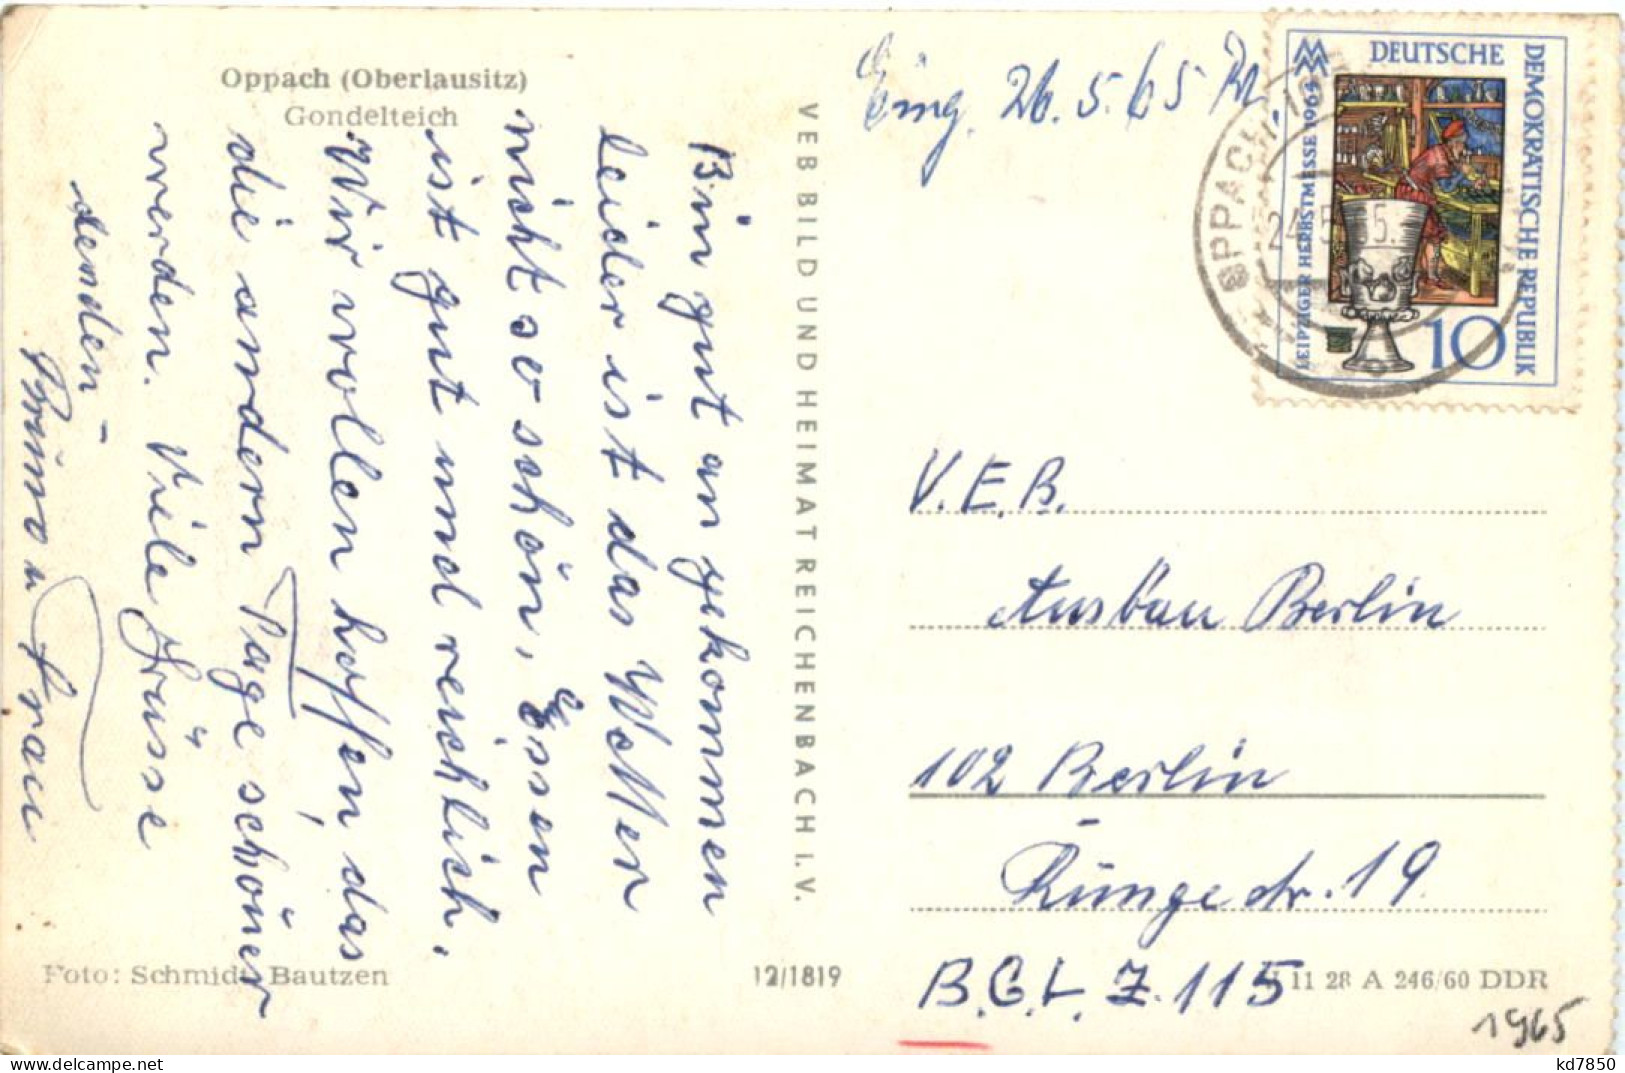 Oppach (Oberlausitz)
Gondelteich
Bin gut an gekommen
leider ist das Wetter
nicht so schön, Essen
ist gut und reichlich,
Wir wollen hoffen, das
die andern Tage schöner
werden. Viele Grüsse
senden
Bruno u Frau
Foto: Schmidt, Bautzen
12/1819
VEB BILD UND HEIMAT REICHENBACH I.V.
Eing. 26.5.65
MM
DEUTSCHE
DEMOKRATISCHE REPUBLIK
LEIPZIGER HERBSTMESSE 1964
10
OPPACH
24.5.65
V.E.B.
Ausbau Berlin
102 Berlin
Rungestr. 19
B.G.L. Z. 115
11 28 A 246/60 DDR
1965
kd7850